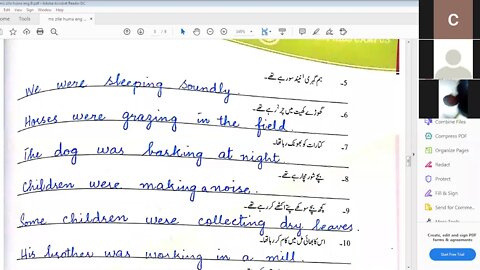 ms zille huma eng B.pdf - Adobe Acrobat Reader DC
5- ہم گہری نیند سو رہے تھے۔
We were sleeping soundly.
6- گھوڑے کھیت میں چر رہے تھے۔
Horses were grazing in the field.
7- کتا رات کو بھونک رہا تھا۔
The dog was barking at night.
8- بچے شور مچا رہے تھے۔
Children were making a noise.
9- کچھ بچے سوکھے پتے اکٹھے کر رہے تھے۔
Some children were collecting dry leaves.
10- اس کا بھائی مل میں کام کر رہا تھا۔
His brother was working in a mill.
C
Combine Files
Compress PDF
Organize Pages
Redact
Protect
Fill & Sign
Send for Comme
Create, edit and sign PDF
forms & agreements
Start Free Trial